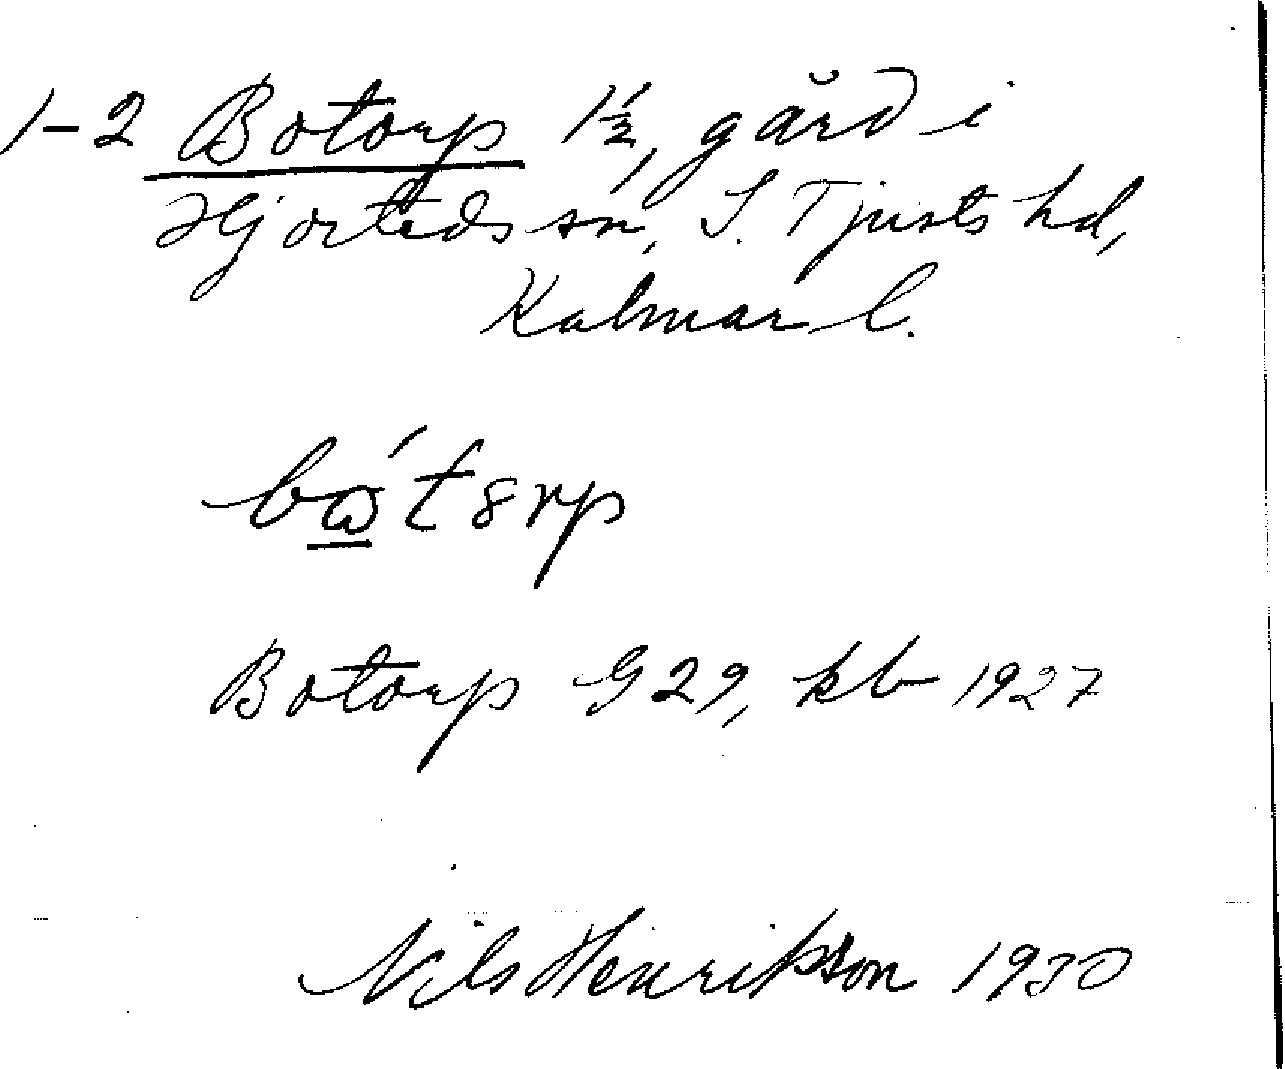 1-2 Botorp 1½, gård i
Hjorteds sn, S. Tjusts hd,
Kalmar l.
Botorp G 29, kb 1927
Nils Henrikson 1930